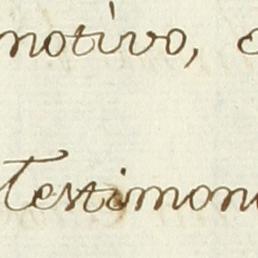 motivo, e
Testimoni